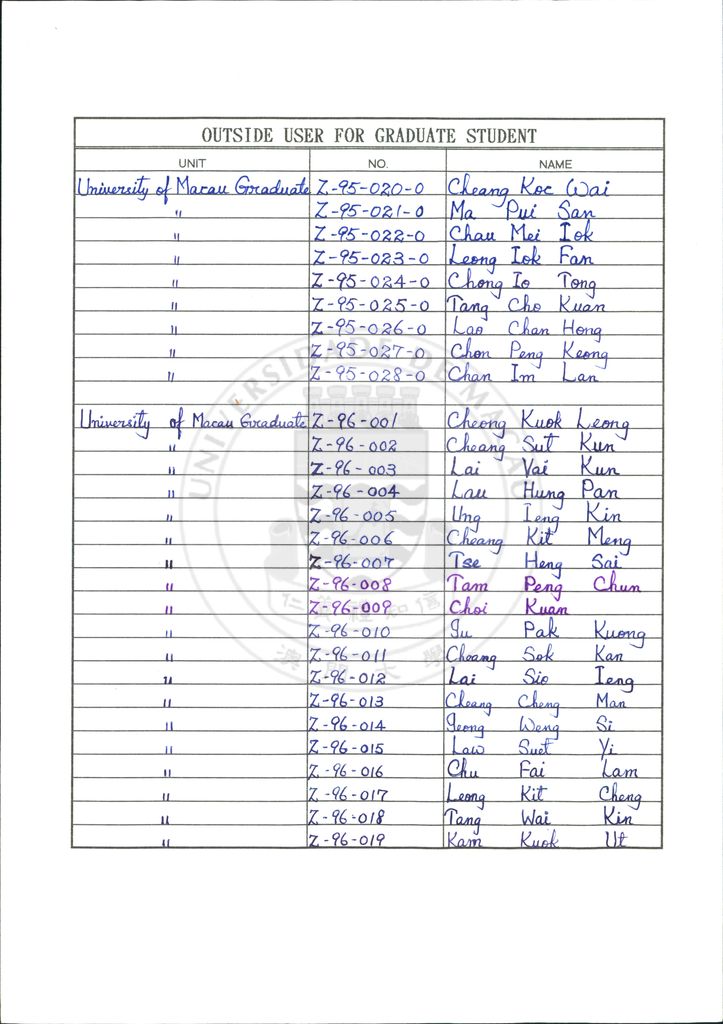 OUTSIDE USER FOR GRADUATE STUDENT
UNIT NO. NAME
University of Macau Graduate Z-95-020-0 Cheang Koc Wai
" Z-95-021-0 Ma Pui San
" Z-95-022-0 Chau Mei Iok
" Z-95-023-0 Leong Iok Fan
" Z-95-024-0 Chong Io Tong
" Z-95-025-0 Tang Cho Kuan
" Z-95-026-0 Lao Chan Hong
" Z-95-027-0 Chon Peng Keong
" Z-95-028-0 Chan Im Lan
University of Macau Graduate Z-96-001 Cheong Kuok Leong
" Z-96-002 Cheang Sut Kun
" Z-96-003 Lai Vai Kun
" Z-96-004 Lau Hung Pan
" Z-96-005 Ung Ieng Kin
" Z-96-006 Cheang Kit Meng
" Z-96-007 Tse Heng Sai
" Z-96-008 Tam Peng Chun
" Z-96-009 Choi Kuan
" Z-96-010 Iu Pak Kuong
" Z-96-011 Cheang Sok Kan
" Z-96-012 Lai Sio Ieng
" Z-96-013 Cheang Cheng Man
" Z-96-014 Ieong Weng Si
" Z-96-015 Law Suet Yi
" Z-96-016 Chu Fai Lam
" Z-96-017 Leong Kit Cheng
" Z-96-018 Tang Wai Kin
" Z-96-019 Kam Kuok Ut
UNIVERSIDADE DE MACAU
仁義禮知信
澳門大學